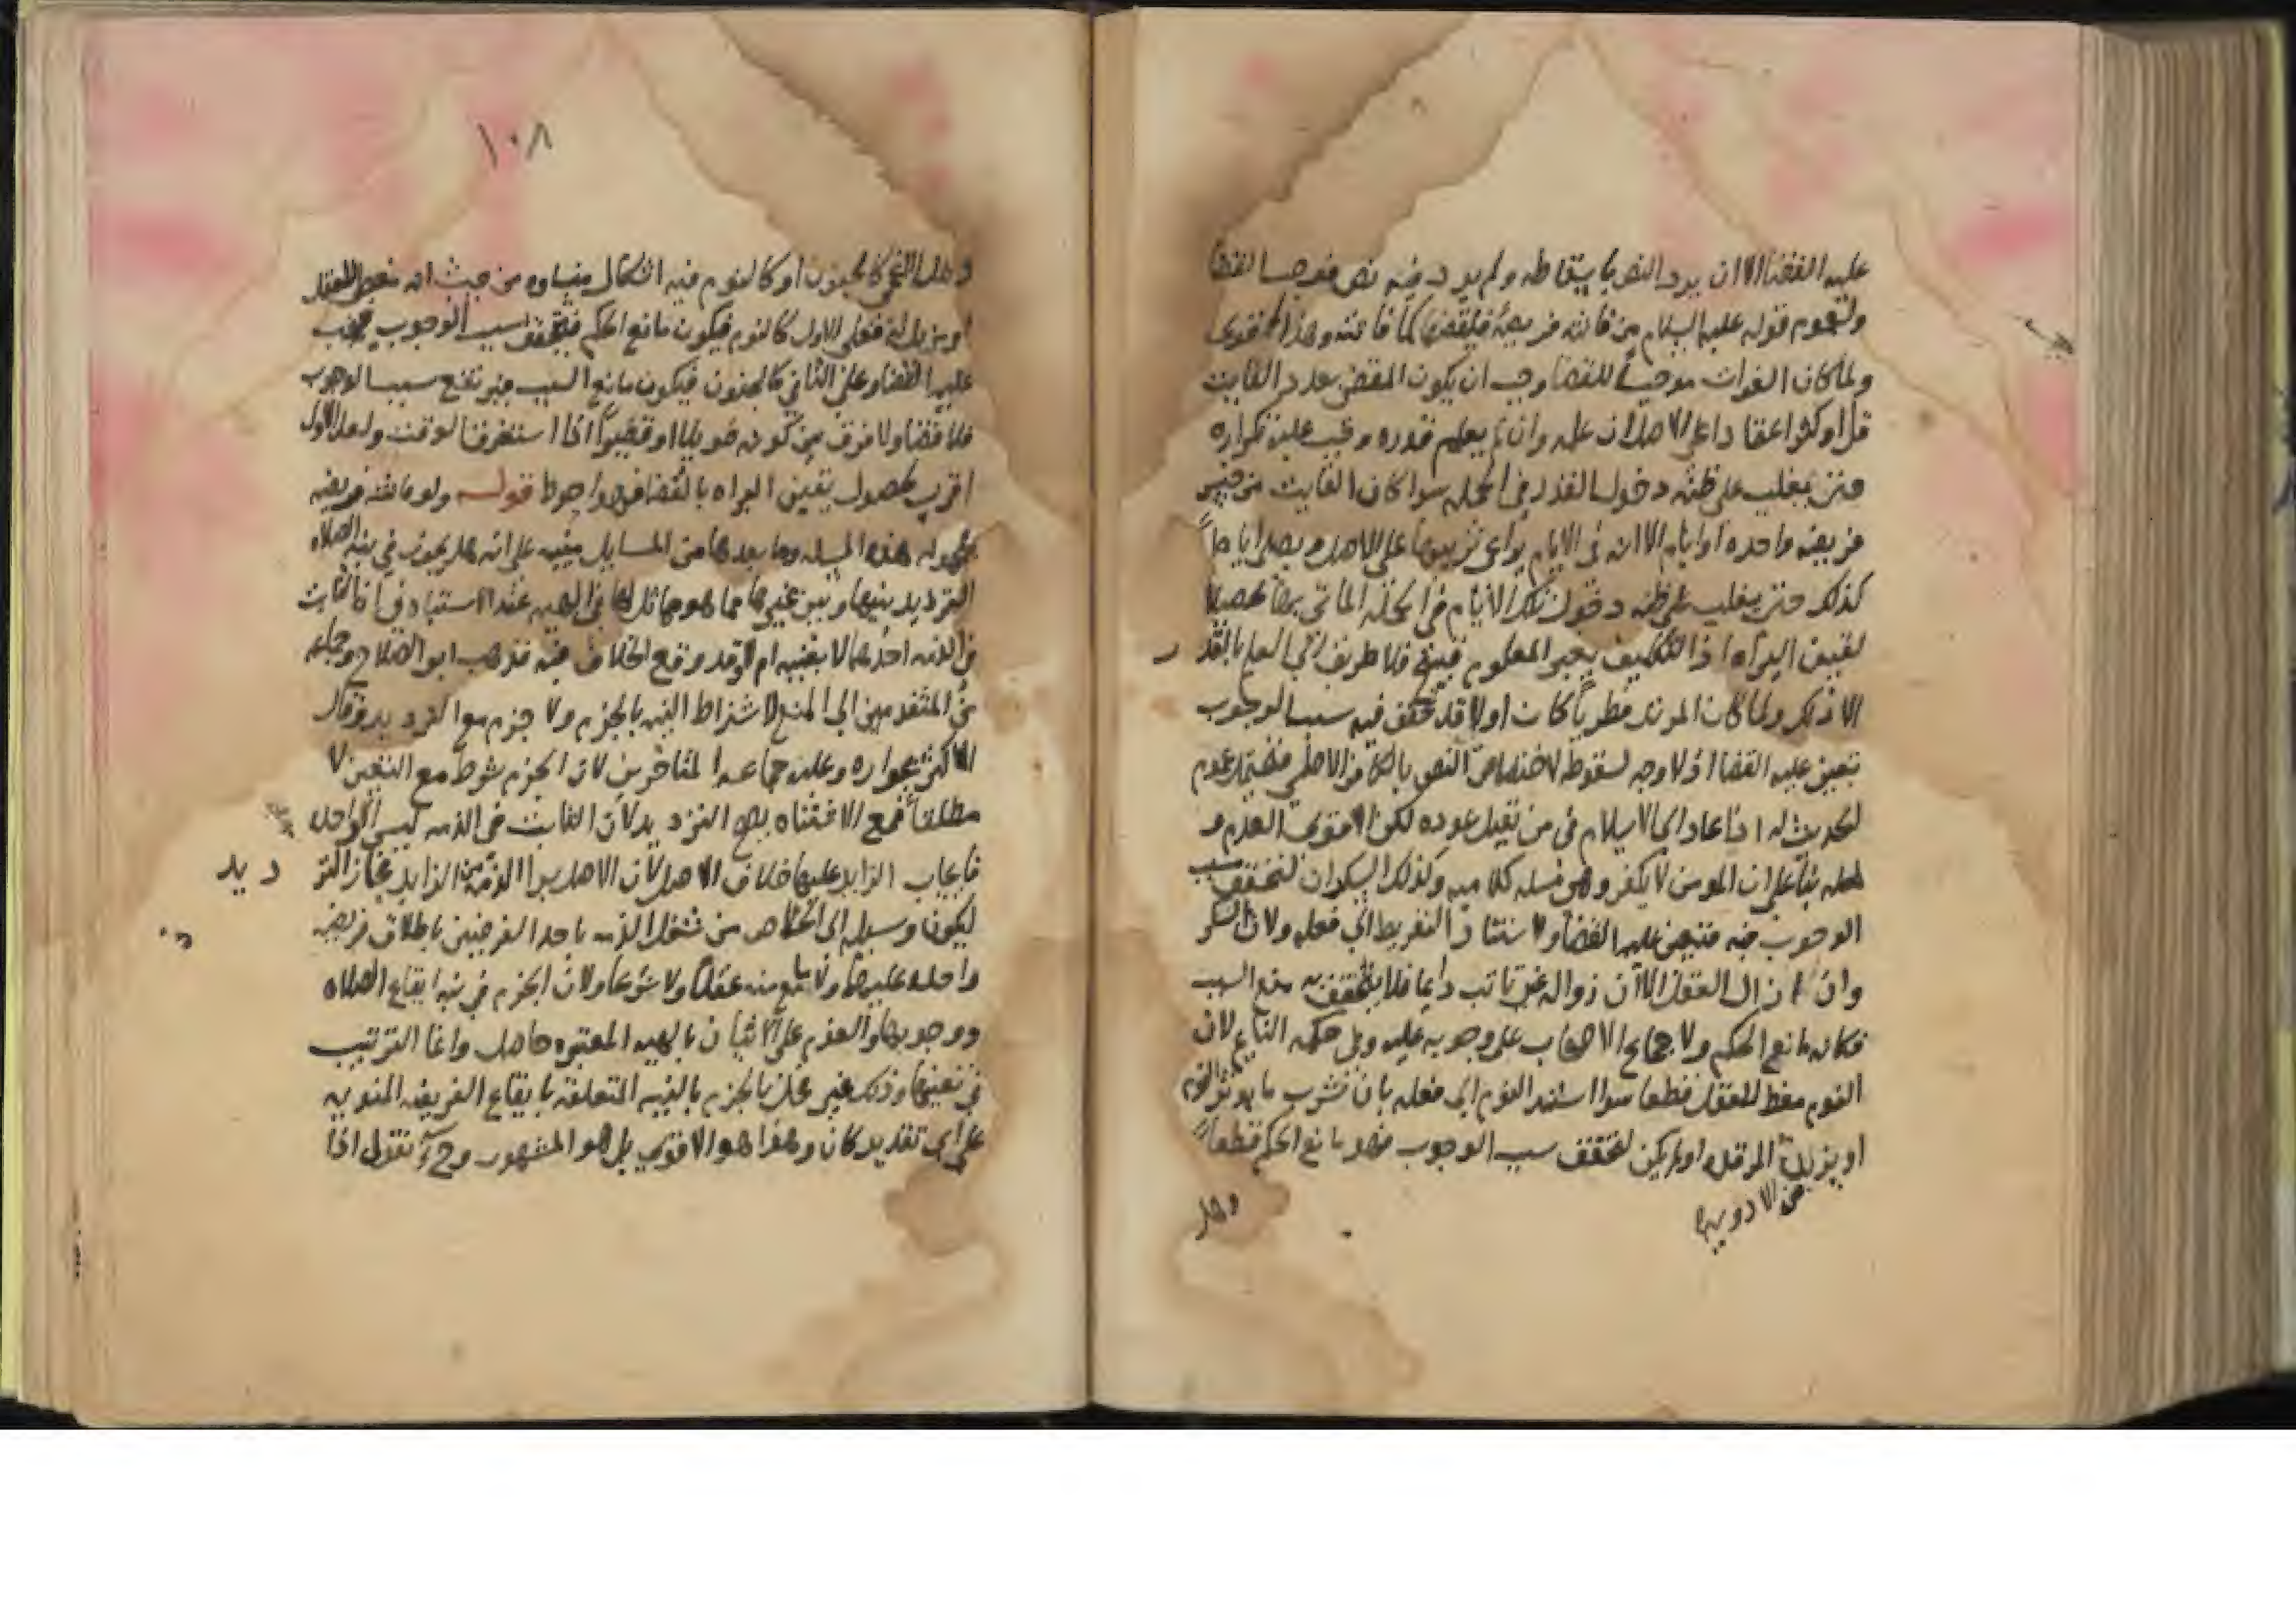 عليه القضا الا ان يرد النص باسقاطه ولم يرد فيه نص فوجب القضا
ولعموم قوله عليه السلام من فاتته فريضة فليقضها كما فاتته وهذا اقوى
ولما كان الفوات موجبا للقضا وجب ان يكون المقضى بعدد الفايت
قل او كثر اعتمادا على الاصل ان علم وان لم يعلم قدره وجب عليه تكراره
حتى يغلب على ظنه دخول القدر في الجمله سوا كان الفايت من جنس
فريضه واحده او ايام الا انه في الايام يراعى ترتيبها على الاصل ويصلى اياما
كذلك حتى يغلب على ظنه دخول تلك الايام في الجمله الماتى بها تحصيلا
ليقين البراه اذ التكليف بغير المعلوم قبيح فلا طريق الى العلم بالقدر
الا ذلك ولما كان المرتد فطريا كان اولا قد تحقق فيه سبب الوجوب
تعين عليه القضا اذ لا وجه لسقوطه لاختصاص النص بالكافر الاصلي
لحديث له اذا عاد الى الاسلام في من تقبل عوده لكن الاقوى العدم و
لعله بنا على ان المومن لا يكفر وهى مسله كلاميه وكذلك السكران لتحقق سبب
الوجوب فيه فتعين عليه القضا ولاستناد التفريط الى فعله ولان السكر
وان ازال العقل الا ان زواله غير ثابت دايما فلا يتحقق به منع السبب
فكان مانع الحكم ولاجماع الاصحاب على وجوبه عليه ومثل حكمه النايم لان
النوم مغط للعقل قطعا سوا استند النوم الى فعله بان شرب ما يوثر النوم
او يزيله المرقد او لم يكن لتحقق سبب الوجوب فهو مانع الحكم قطعا
من الادويه
وهل
١٠٨
وهل المغمى كالمجنون او كالنوم فيه اشكال منشاوه من حيث انه مغط للعقل
او مزيل له فعلى الاول كالنوم فيكون مانع الحكم فيتحقق سبب الوجوب فيجب
عليه القضا وعلى الثاني كالجنون فيكون مانع السبب فيرتفع سبب الوجوب
فلا قضا ولا فرق بين كونه طويلا او قصيرا اذا استغرق الوقت ولعل الاول
اقرب لحصول يقين البراه بالقضا فهو احوط قوله ولو فاتته فريضه
مجهوله هذه المسله وما بعدها من المسايل مبنيه على انه هل يجوز في نيه الصلاه
الترديد بينها وبين غيرها مما هو مماثل لها في الهيه عند الاشتباه في ان الفايت
في الذمه احدهما لا بعينه ام لا وقد وقع الخلاف فيه فذهب ابو الصلاح وجماعه
من المتقدمين الى المنع لاشتراط النيه بالجزم ولا جزم مع الترديد وقال
الاكثر بجوازه وعليه جماعه المتاخرين لان الجزم شرط مع التعين لا
مطلقا فمع الاشتباه يصح الترديد لان الفايت في الذمه ليس الا واحد
فايجاب الزايد عليها خلاف الاصل لان الاصل براه الذمه من الزايد فجاز التر
ديد
ليكون وسيله الى الخلاص من شغل الذمه باحد الفرضين باطلاق فريضه
واحده عليهما ولا مانع منه عقلا ولا شرعا ولان الجزم في نيه ايقاع الصلاه
ووجوبها والعزم على الاتيان بالهيه المعتبره حاصل وانما الترتيب
في تعينها وذلك غير مخل بالجزم بالنيه المتعلقه بايقاع الفريضه المنويه
على اى تقدير كان وهذا هو الاقوى بل هو المشهور وح نقول اذا